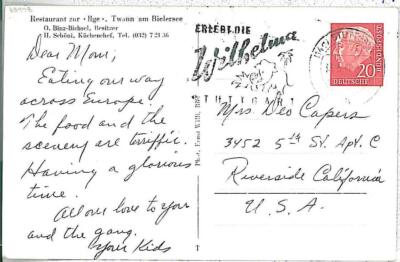 Restaurant zur «Ilge», Twann am Bielersee
O. Binz-Bichsel, Besitzer
H. Schöni, Küchenchef, Tel. (032) 7 21 36
Dear Mom,
Eating our way
across Europe.
The food and the
scenery are triffic.
Having a glorious
time.
All our love to you
and the gang.
Your Kids
ERLEBT DIE
Wilhelma
STUTTGART
DEUTSCHE
BUNDESPOST
20
Mrs Deo Capers
3452 5th St. Apt. C
Riverside California
U. S. A.
T